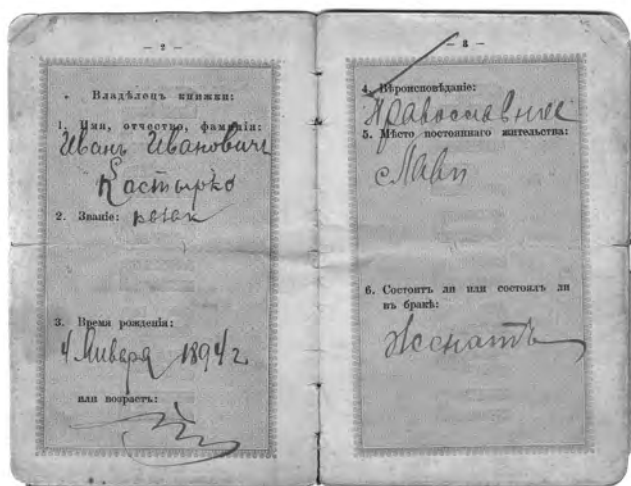 — 2 —
Владѣлецъ книжки:
1. Имя, отчество, фамилія:
Иванъ Ивановичъ
Костырко
2. Званіе:
3. Время рожденія:
4 Января 1894 г
или возрастъ:
— 3 —
4. Вѣроисповѣданіе:
Православное
5. Мѣсто постояннаго жительства:
6. Состоитъ ли или состоялъ ли
въ бракѣ:
Женатъ